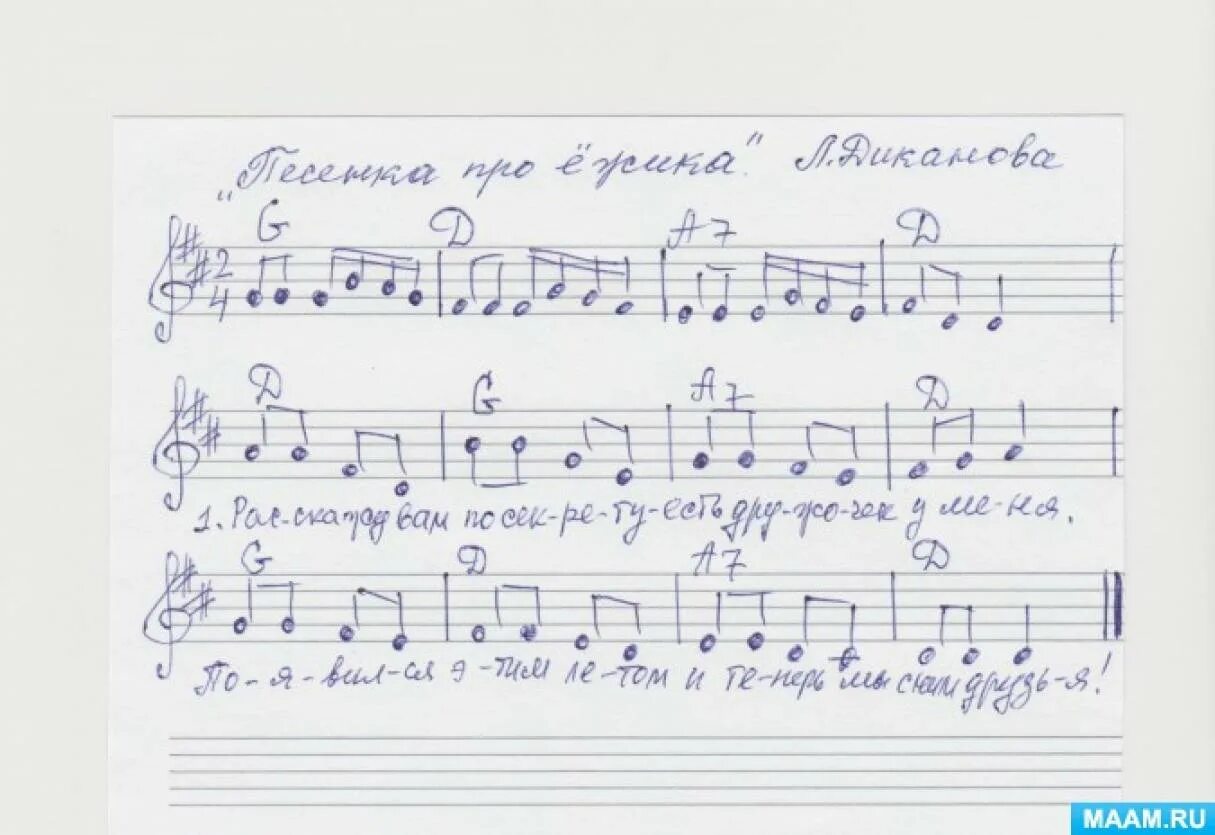 "Песенка про ёжика". Л. Диканова
G D A7 D
2
4
D G A7 D
1. Рас-скажу вам по сек-ре-ту-есть дру-жо-чек у ме-ня.
G D A7 D
По-я-вил-ся э-тим ле-том и те-перь мы с ним друзь-я!
MAAM.RU